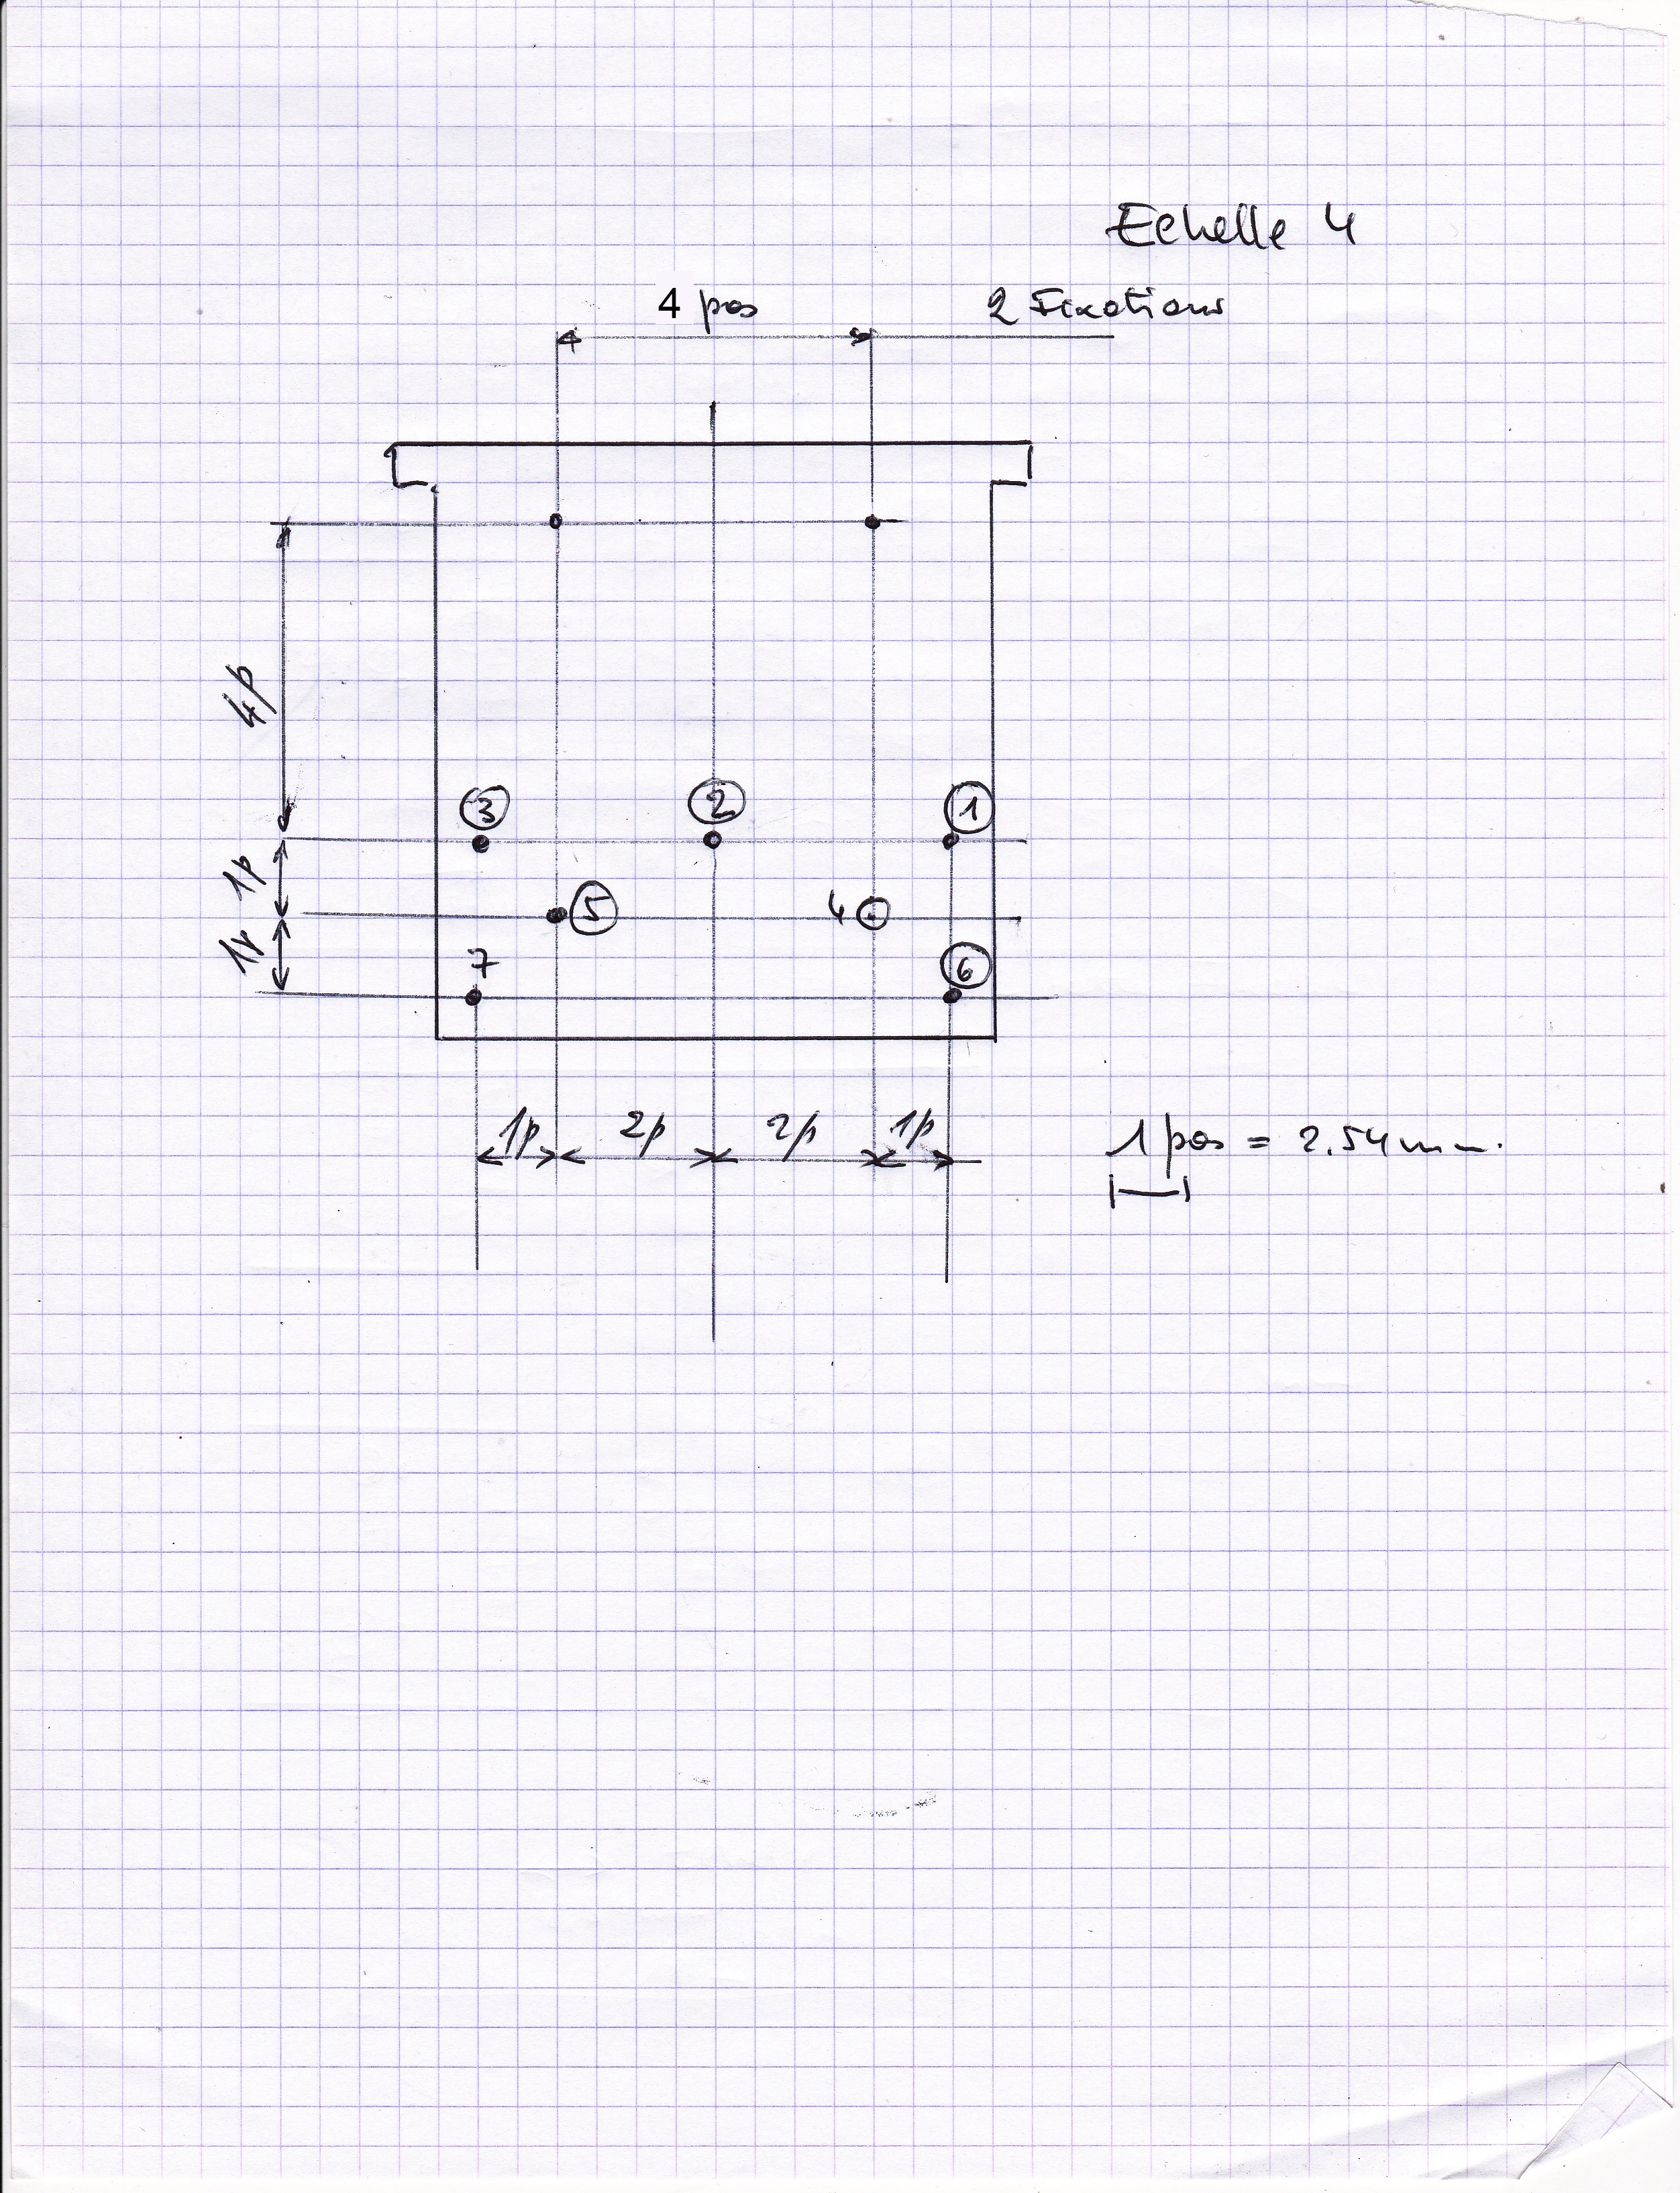 Echelle 4
4 pas
2 Fixations
4p
3 2 1
1p
5 4
1p
7 6
1p 2p 2p 1p
1 pas = 2.54 mm.